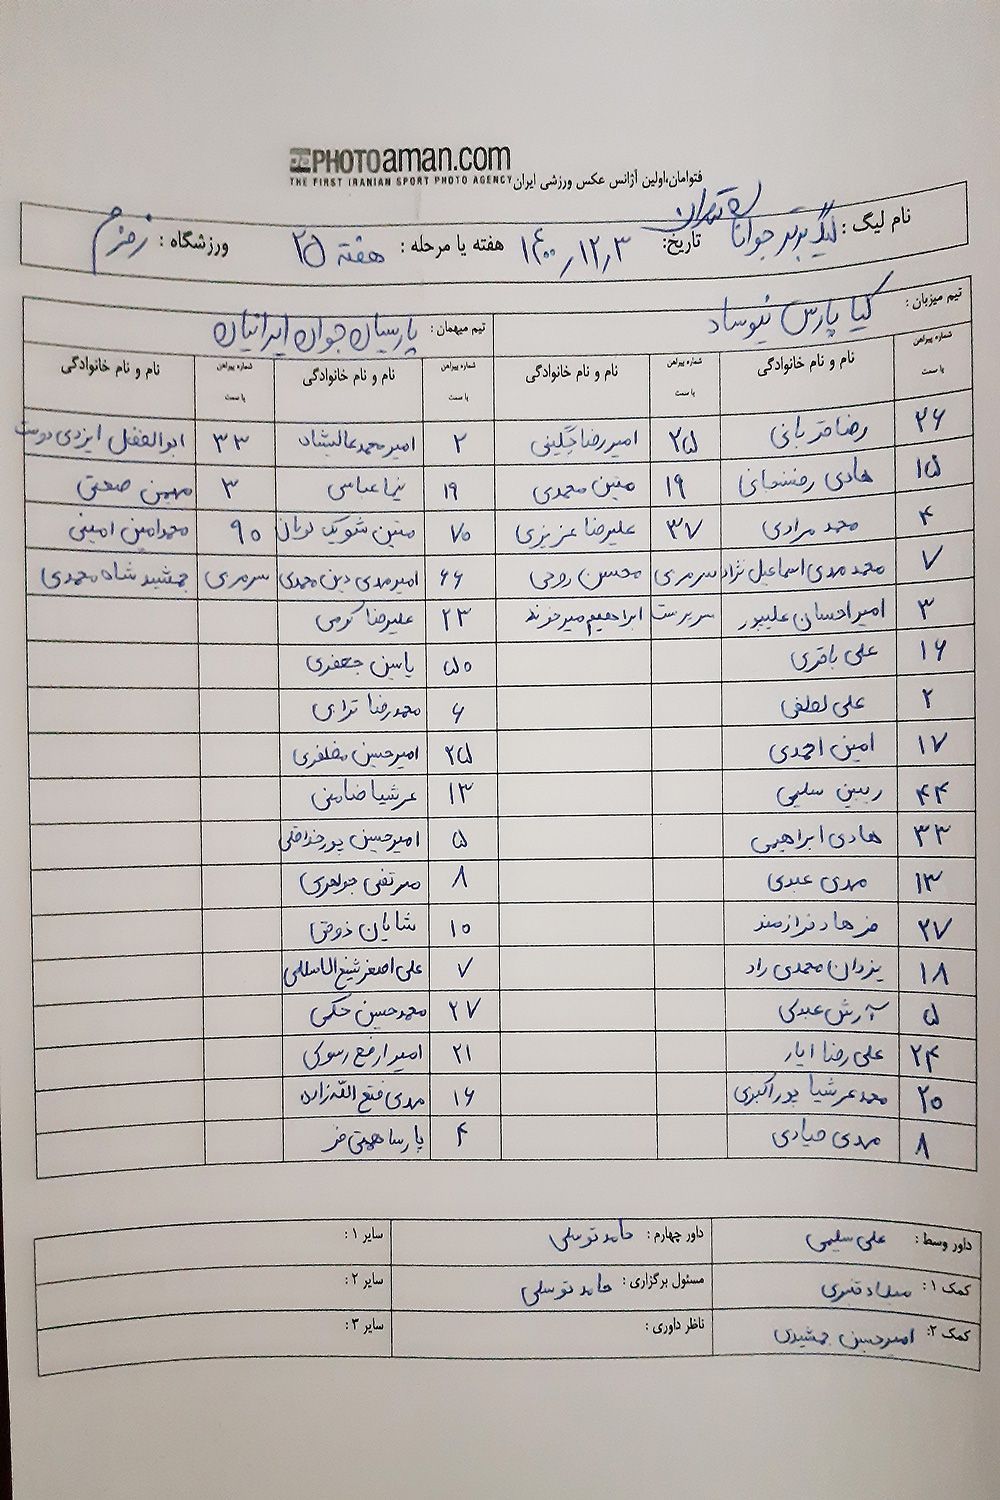 PHOTOaman.com
THE FIRST IRANIAN SPORT PHOTO AGENCY فتوامان،اولین آژانس عکس ورزشی ایران
نام لیگ : لیگ برتر جوانان تهران تاریخ: ۱۴۰۰٫۱۲٫۳ هفته یا مرحله : هفته ۲۵ ورزشگاه : زمزم
تیم میزبان : کیا پارس نیوساد تیم میهمان : پارسیان جوان ایرانیان
شماره پیراهن یا سمت نام و نام خانوادگی شماره پیراهن یا سمت نام و نام خانوادگی شماره پیراهن یا سمت نام و نام خانوادگی شماره پیراهن یا سمت نام و نام خانوادگی
۲۶ رضا قربانی ۲۵ امیررضا چگینی ۲ امیرمحمد عالیشاه ۳۳ ابوالفضل ایزدی دوست
۱۵ هادی رفسنجانی ۱۹ متین محمدی ۱۹ نیما عباسی ۳ بهمن صنعتی
۴ محمد مرادی ۳۷ علیرضا عزیزی ۷۰ متین ۹۰ محمدامین امینی
۷ محمد مهدی اسماعیل نژاد سرمربی محسن روحی ۶۶ امیرمهدی دین محمدی سرمربی جمشید شاه محمدی
۳ امیراحسان علیپور سرپرست ابراهیم میرخوند ۲۳ علیرضا کرمی
۱۶ علی باقری ۵۰ یاسین جعفری
۲ علی لطفی ۶ محمدرضا ترابی
۱۷ امین احمدی ۲۵ امیرحسین مظفری
۴۴ ربین سلیمی ۱۳ عرشیا ضامنی
۳۳ هادی ابراهیمی ۵ امیرحسین پورخداقلی
۱۳ مهدی عبدی ۸ مرتضی جواهری
۲۷ فرهاد فرازمند ۱۰ شایان ذوقی
۱۸ یزدان محمدی راد ۷ علی اصغر شیخ الاسلامی
۵ آرش عبدی ۲۷ محمدحسین حکمی
۲۴ علی رضا ایار ۲۱ امیر ارفع رسولی
۲۰ محمد عرشیا پوراکبری ۱۶ مهدی فتح الله زاده
۸ مهدی صیادی ۴ پارسا همتی فر
داور وسط : علی سلیمی داور چهارم : حامد توسلی سایر ۱ :
کمک ۱ : میلاد قنبری مسئول برگزاری : حامد توسلی سایر ۲ :
کمک ۲: امیرحسین جمشیدی ناظر داوری : سایر ۳ :